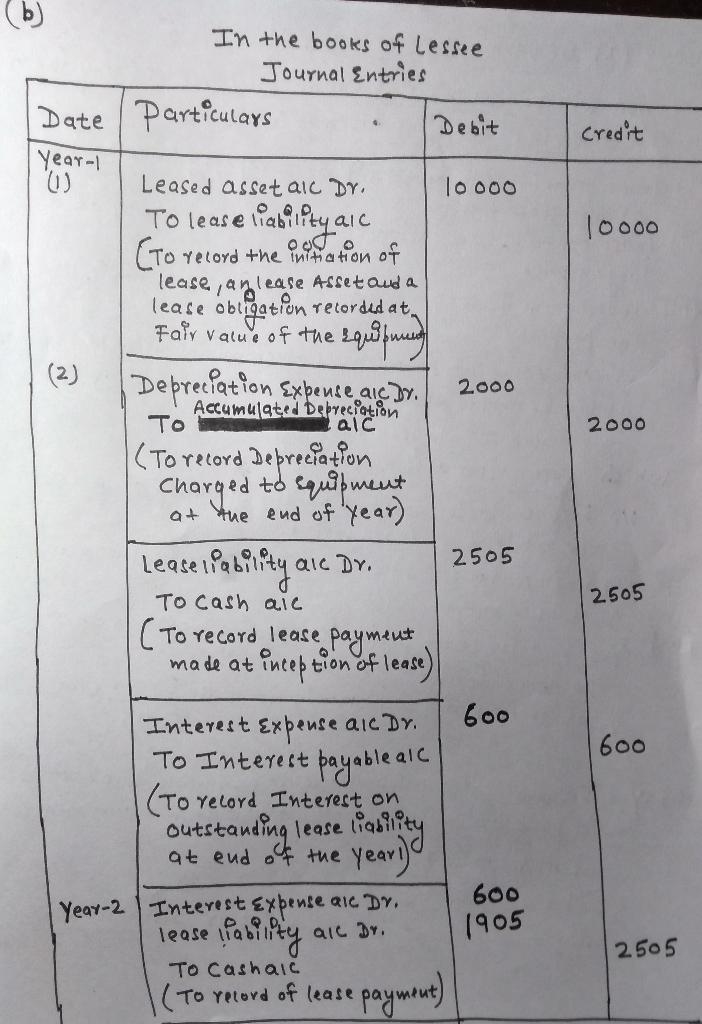 (b)
In the books of Lessee
Journal Entries
Date Particulars Debit Credit
Year-1
(1) Leased asset a/c Dr. 10 000
To lease liability a/c 10000
(To record the initiation of
lease, an lease Asset and a
lease obligation recorded at
Fair value of the Equipment)
(2) Depreciation Expense a/c Dr. 2000
Accumulated Depreciation
To a/c 2000
(To record Depreciation
Charged to Equipment
at the end of Year)
Lease liability a/c Dr. 2505
To Cash a/c 2505
(To record lease payment
made at inception of lease)
Interest Expense a/c Dr. 600
To Interest payable a/c 600
(To record Interest on
outstanding lease liability
at end of the Year1)
Year-2 Interest Expense a/c Dr. 600
lease liability a/c Dr. 1905
To Cash a/c 2505
(To record of lease payment)